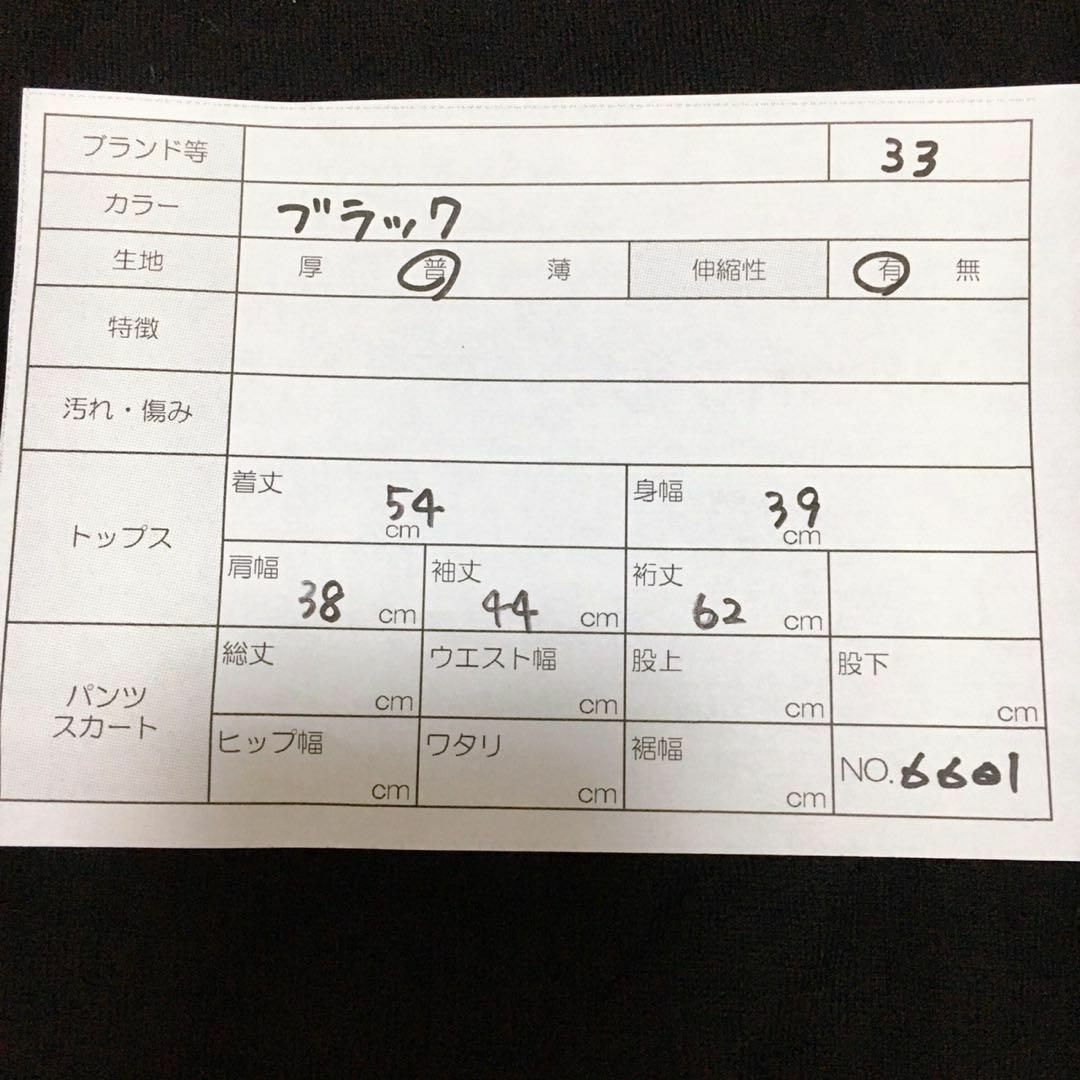 ブランド等 33
カラー ブラック
生地 厚 普 薄 伸縮性 有 無
特徴
汚れ・傷み
トップス
着丈 54 cm 身幅 39 cm
肩幅 38 cm 袖丈 44 cm 裄丈 62 cm
パンツ
スカート
総丈 cm ウエスト幅 cm 股上 cm 股下 cm
ヒップ幅 cm ワタリ cm 裾幅 cm NO. 6601